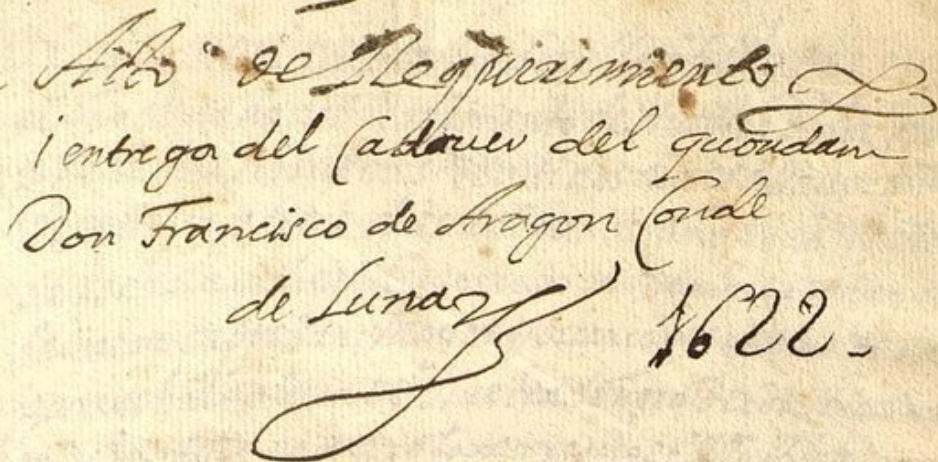 Atto de Requirimiento
i entrega del Cadauer del quondam
Don Francisco de Aragon Conde
de Luna
1622